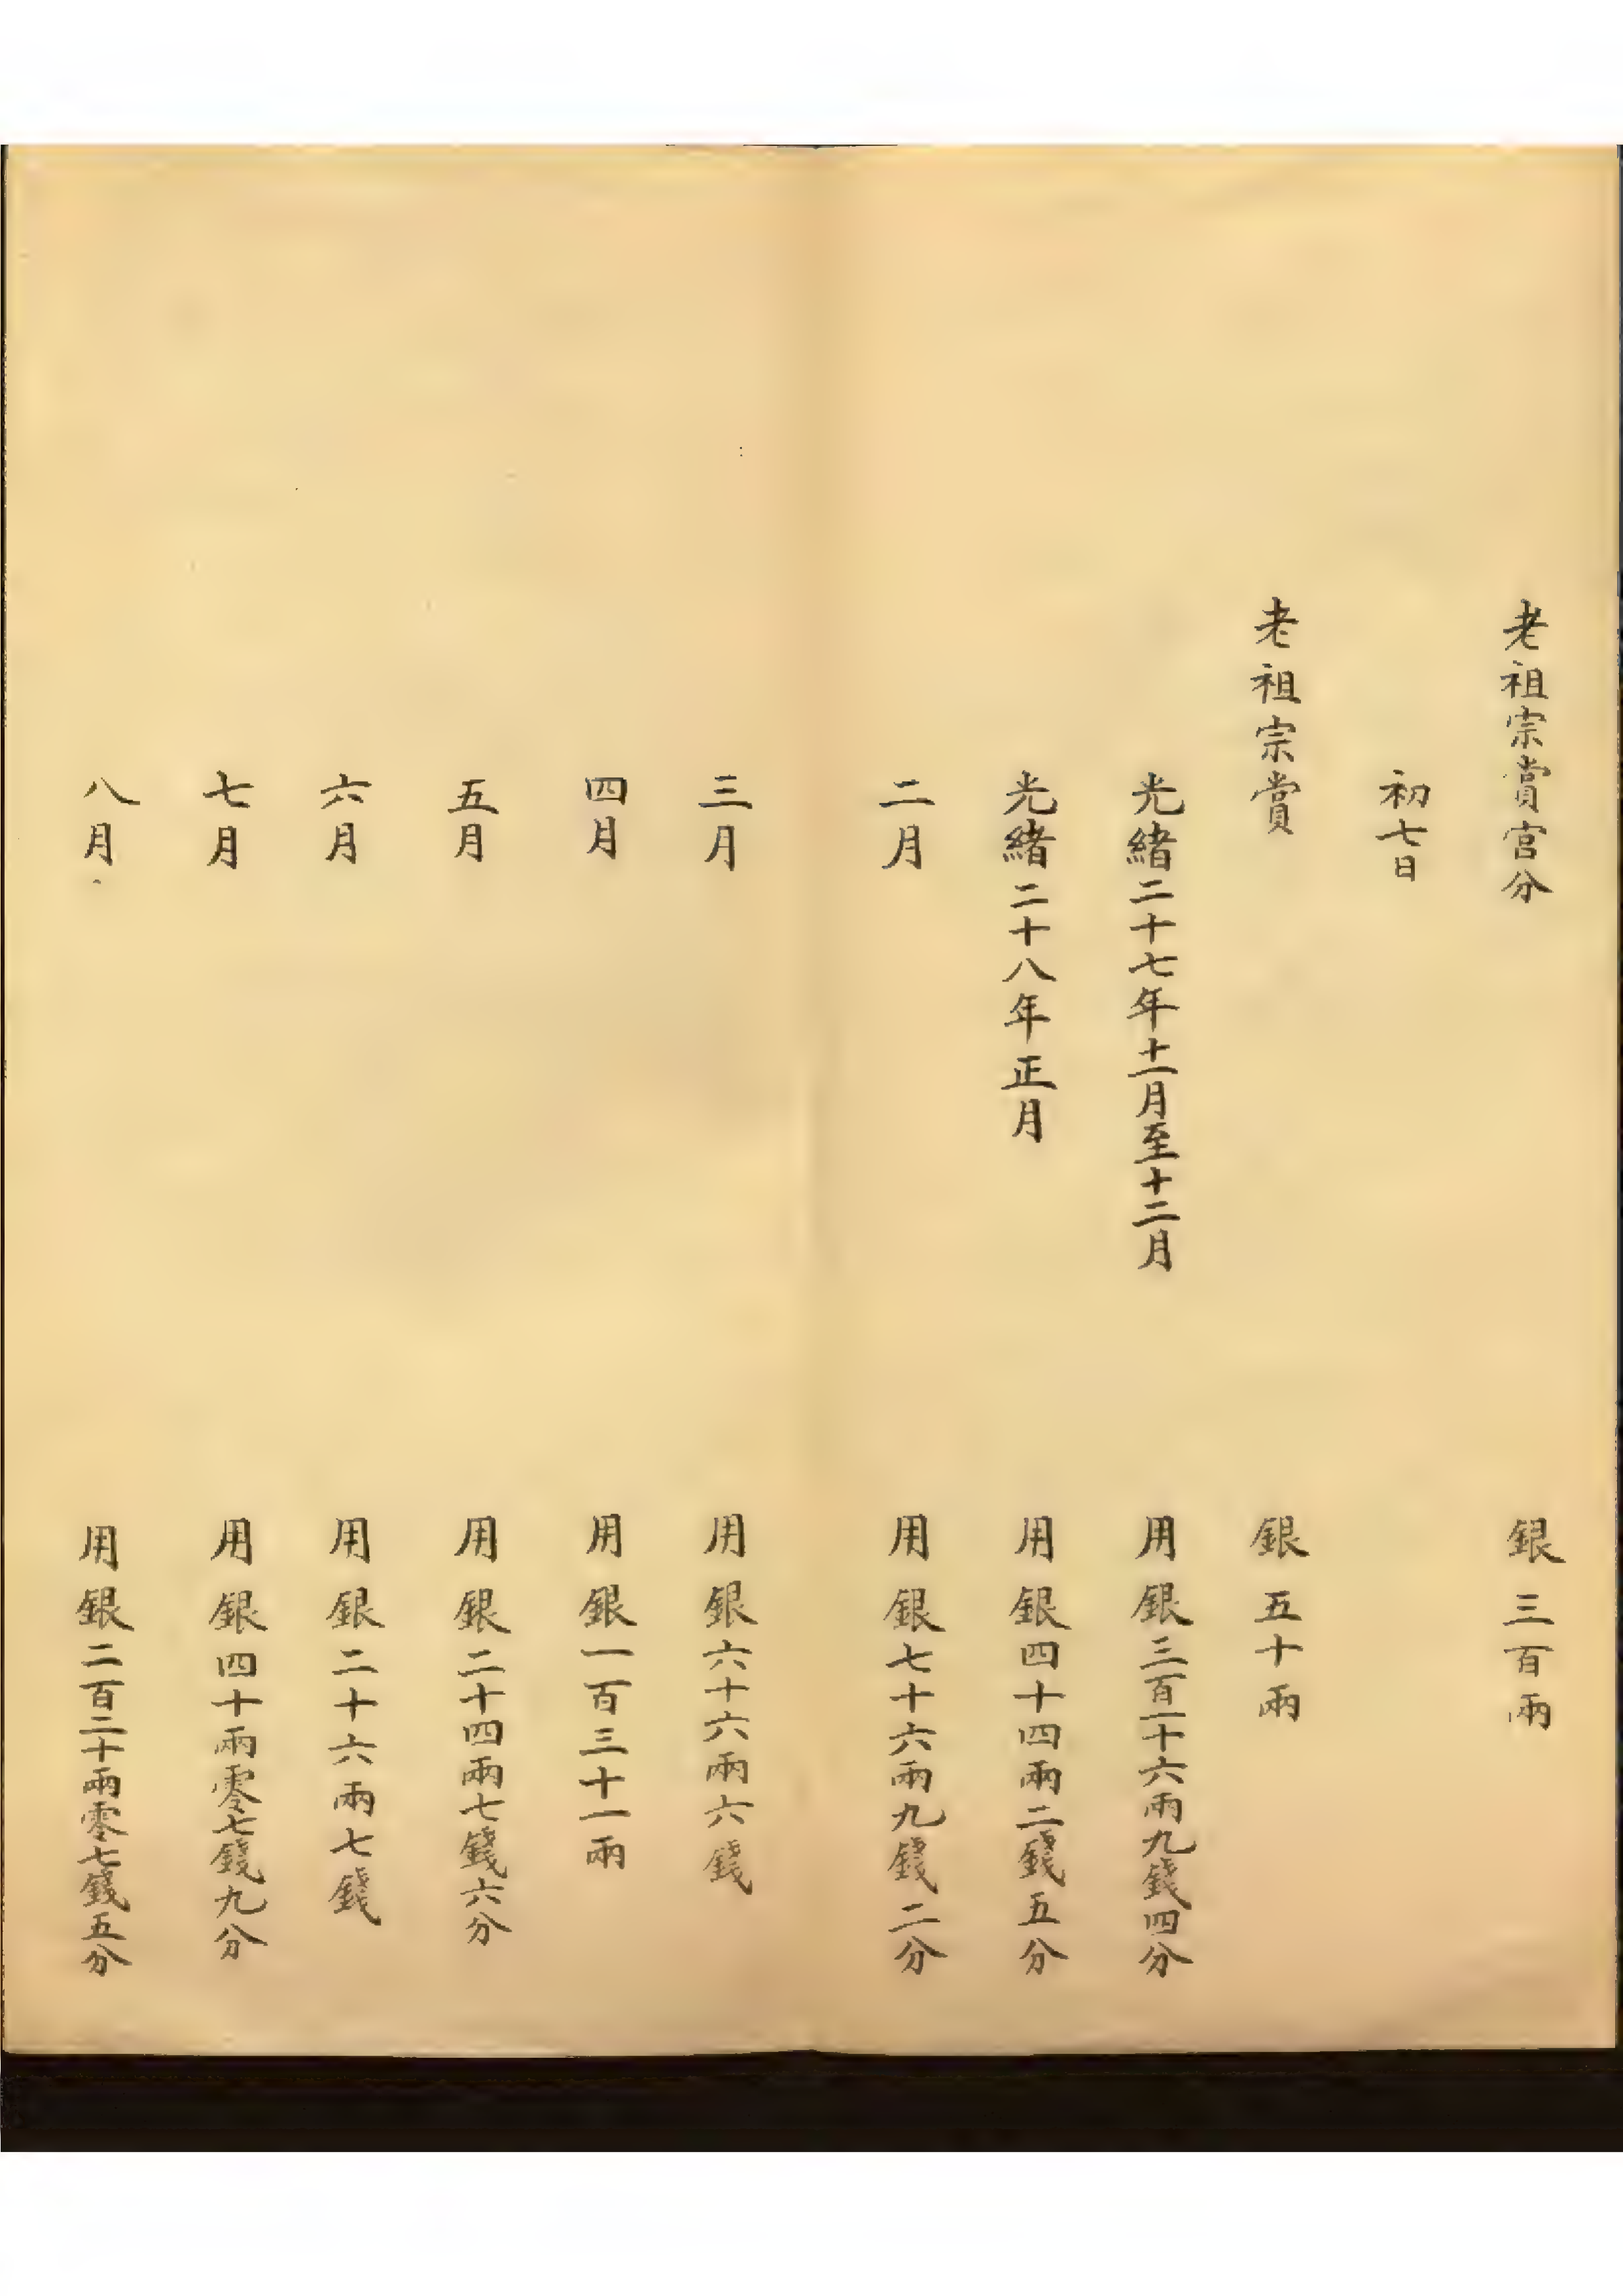 老祖宗賞宮分 銀三百兩
初七日
老祖宗賞 銀五十兩
光緒二十七年十一月至十二月 用銀三百一十六兩九錢四分
光緒二十八年正月 用銀四十四兩二錢五分
二月 用銀七十六兩九錢二分
三月 用銀六十六兩六錢
四月 用銀一百三十一兩
五月 用銀二十四兩七錢六分
六月 用銀二十六兩七錢
七月 用銀四十兩零七錢九分
八月 用銀二百二十兩零七錢五分